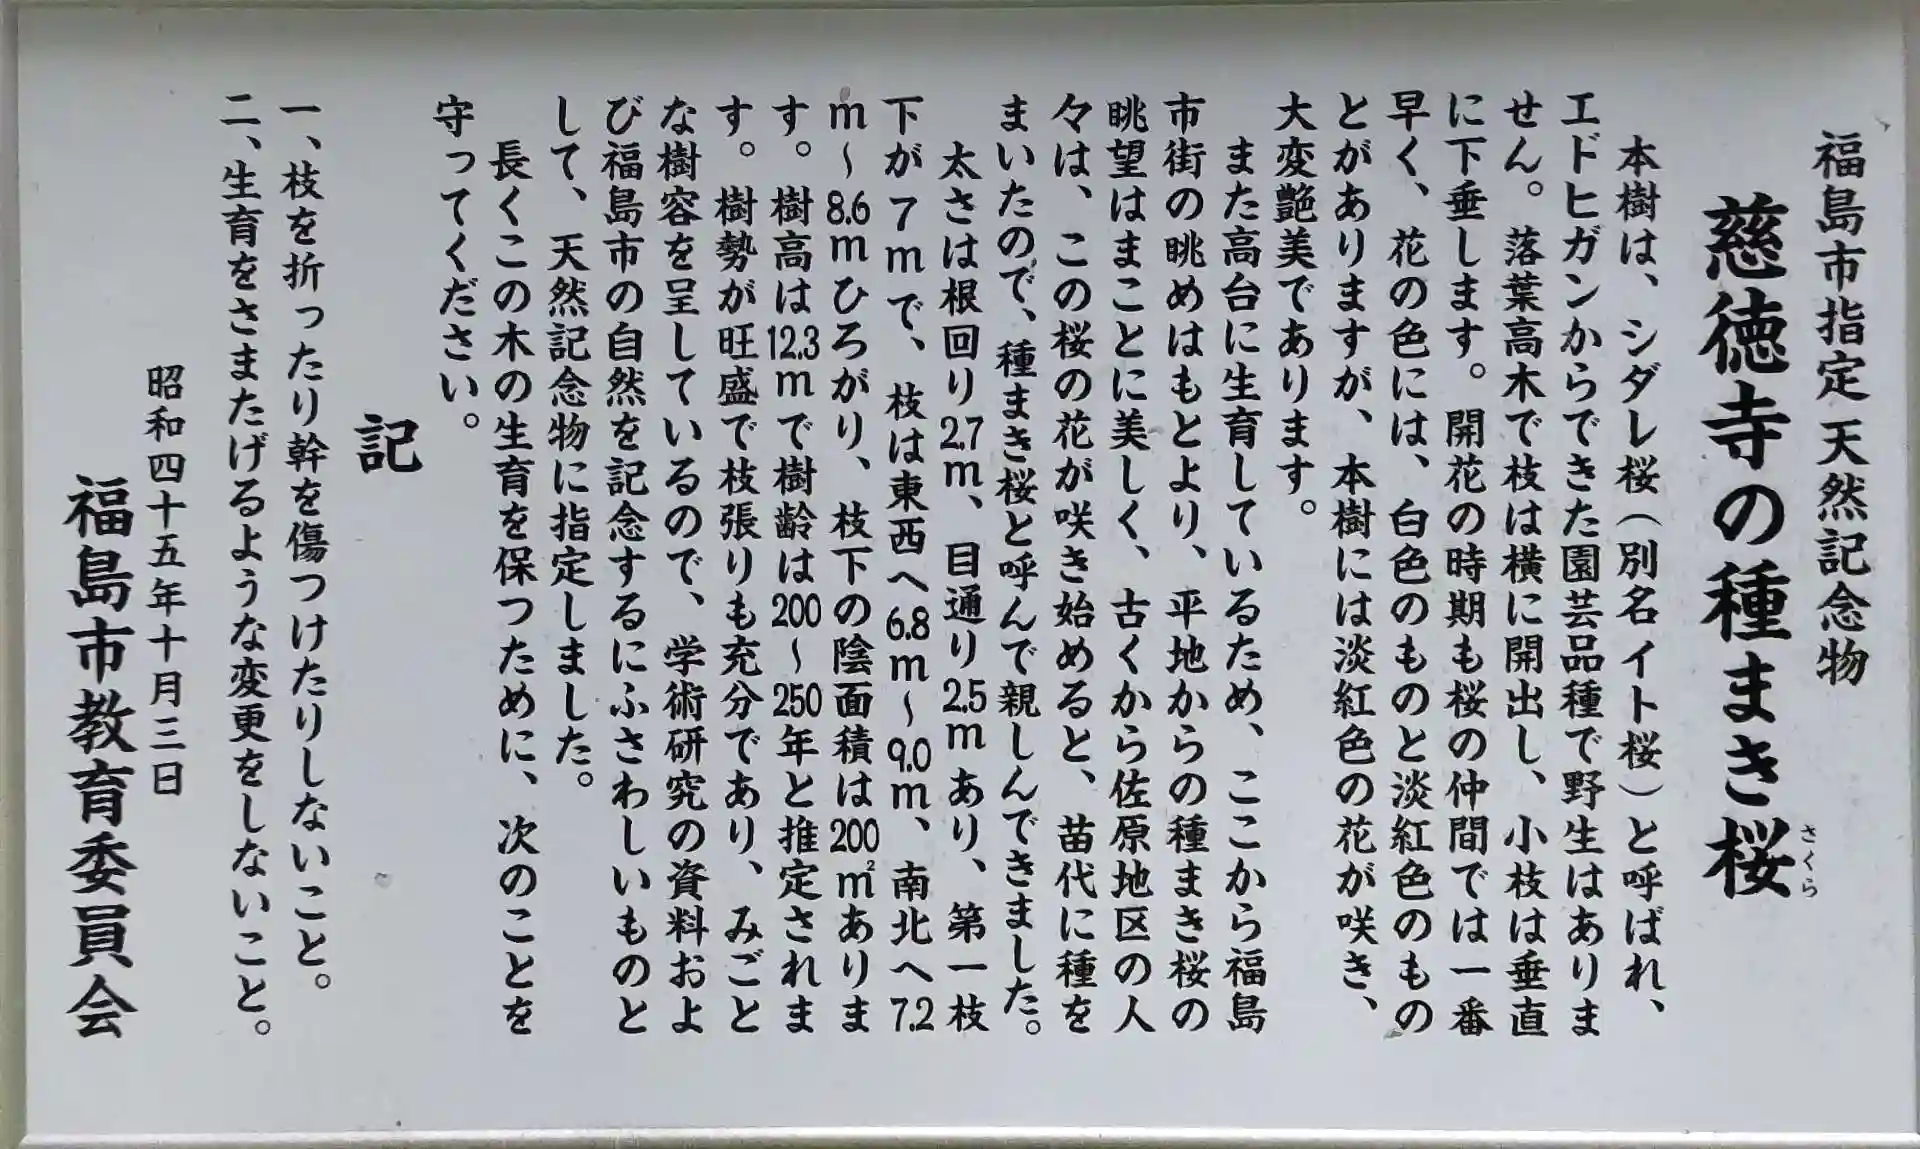 福島市指定天然記念物
慈徳寺の種まき桜
さくら
本樹は、シダレ桜(別名イト桜)と呼ばれ、
エドヒガンからできた園芸品種で野生はありま
せん。落葉高木で枝は横に開出し、小枝は垂直
に下垂します。開花の時期も桜の仲間では一番
早く、花の色には、白色のものと淡紅色のもの
とがありますが、本樹には淡紅色の花が咲き、
大変艶美であります。
また高台に生育しているため、ここから福島
市街の眺めはもとより、平地からの種まき桜の
眺望はまことに美しく、古くから佐原地区の人
々は、この桜の花が咲き始めると、苗代に種を
まいたので、種まき桜と呼んで親しんできました。
太さは根回り2.7m、目通り2.5mあり、第一枝
下が7mで、枝は東西へ6.8m~9.0m、南北へ7.2
m~8.6mひろがり、枝下の陰面積は200㎡ありま
す。樹高は12.3mで樹齢は200~250年と推定されま
す。樹勢が旺盛で枝張りも充分であり、みごと
な樹容を呈しているので、学術研究の資料およ
び福島市の自然を記念するにふさわしいものと
して、天然記念物に指定しました。
長くこの木の生育を保つために、次のことを
守ってください。
記
一、枝を折ったり幹を傷つけたりしないこと。
二、生育をさまたげるような変更をしないこと。
昭和四十五年十月三日
福島市教育委員会